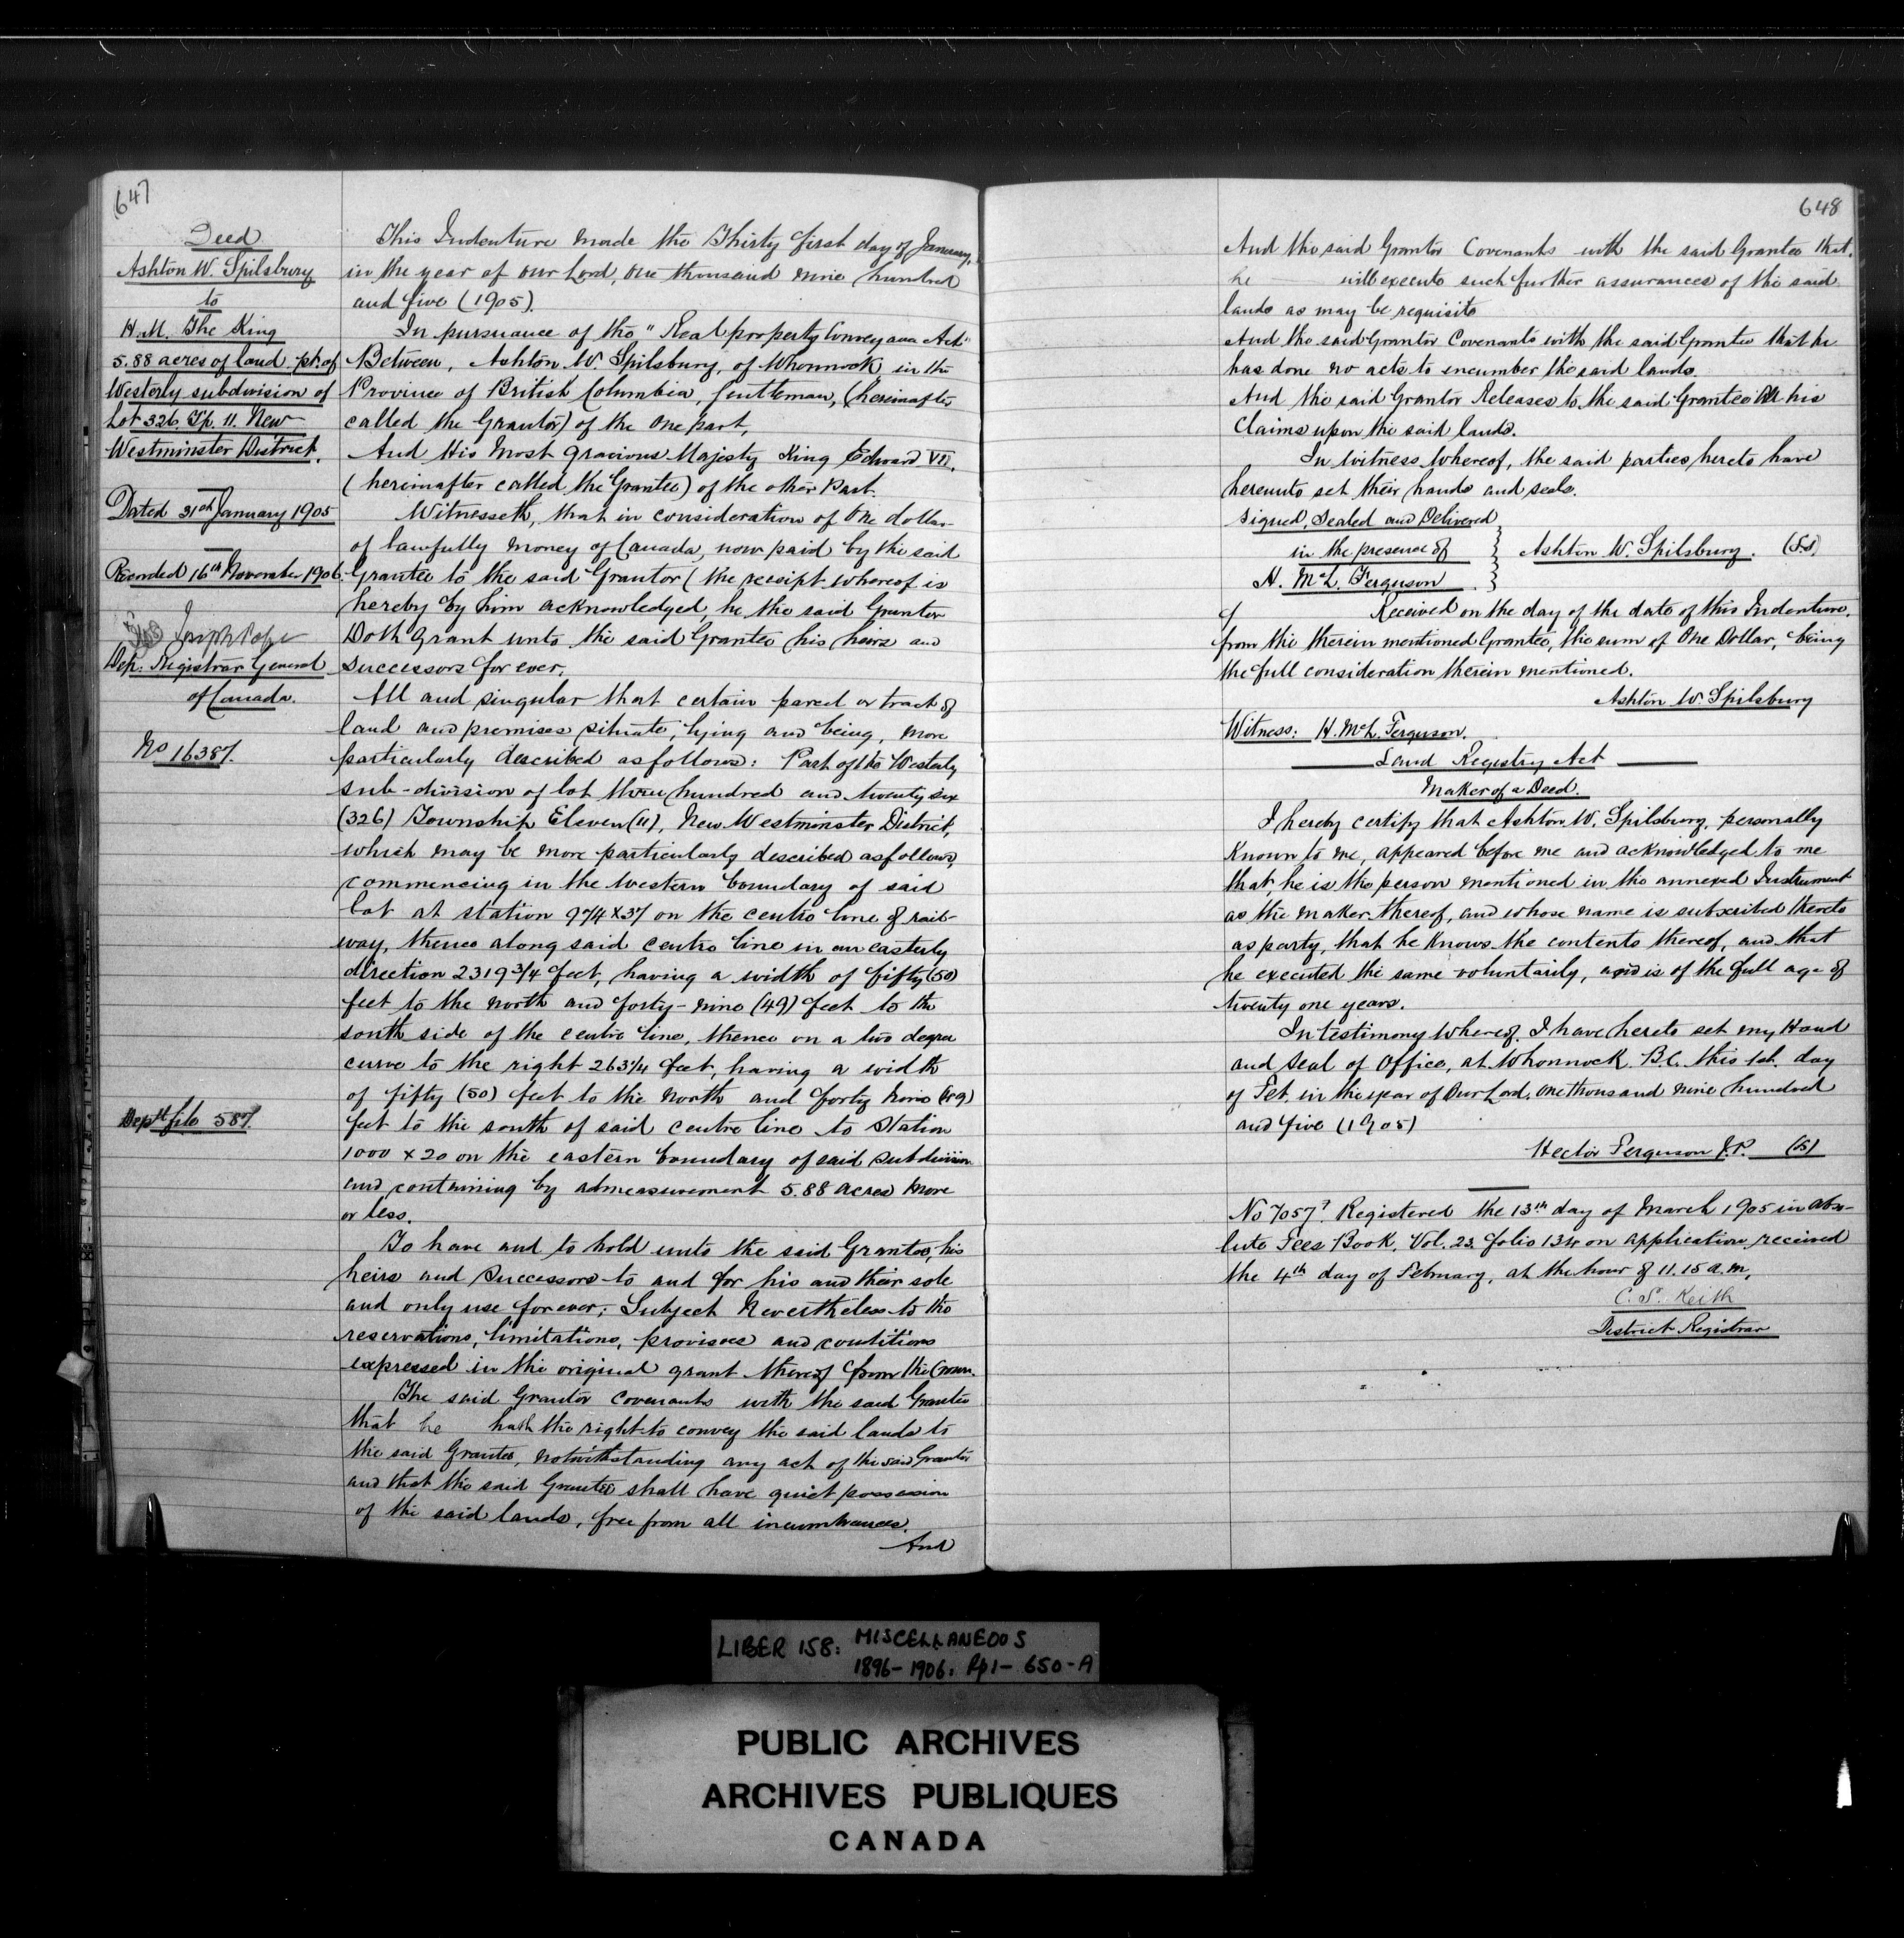 647
Deed
Ashton W. Spilsbury
to
H.M. The King
5.88 acres of land pt. of
Westerly subdivision of
Lot 326. Tp. 11. New
Westminster District.
Dated 31st January 1905
Recorded 16th November 1906
Joseph Pope
Dep. Registrar General
of Canada.
No 16387.
Dept file 587.
This Indenture made the Thirty first day of January,
in the year of our Lord, one thousand nine hundred
and five (1905).
In pursuance of the "Real property Conveyance Act"
Between, Ashton W. Spilsbury, of Whonnock in the
Province of British Columbia, Gentleman, (hereinafter
called the Grantor) of the one part,
And His Most Gracious Majesty King Edward VII.
(hereinafter called the Grantee) of the other Part.
Witnesseth, that in consideration of One dollar
of lawfully money of Canada, now paid by the said
Grantee to the said Grantor (the receipt whereof is
hereby by him acknowledged, he the said Grantor
Doth Grant unto the said Grantee his heirs and
successors for ever,
All and singular that certain parcel or tract of
land and premises situate, lying and being, more
particularly described as follows: Part of the Westerly
sub-division of lot three hundred and twenty six
(326) Township Eleven (11), New Westminster District,
which may be more particularly described as follows,
commencing in the western boundary of said
lot at station 974 x 37 on the centre line of rail-
way, thence along said centre line in an easterly
direction 2319 3/4 feet, having a width of fifty (50)
feet to the north and forty-nine (49) feet to the
south side of the centre line, thence on a two degree
curve to the right 263 1/4 feet, having a width
of fifty (50) feet to the North and forty nine (49)
feet to the south of said centre line to Station
1000 x 20 on the eastern boundary of said subdivision
and containing by admeasurement 5.88 acres more
or less.
To have and to hold unto the said Grantee, his
heirs and successors to and for his and their sole
and only use forever; Subject Nevertheless to the
reservations, limitations, provisoes and conditions
expressed in the original grant thereof from the Crown.
The said Grantor covenants with the said Grantee
that he hath the right to convey the said lands to
the said Grantee, notwithstanding any act of the said Grantor
and that the said Grantee shall have quiet possession
of the said lands, free from all incumbrances.
And
648
And the said Grantor Covenants with the said Grantee that
he will execute such further assurances of the said
lands as may be requisite
And the said Grantor Covenants with the said Grantee that he
has done no acts to encumber the said lands.
And the said Grantor Releases to the said Grantee All his
Claims upon the said lands.
In witness whereof, the said parties hereto have
hereunto set their hands and seals.
Signed, Sealed and Delivered
in the presence of } Ashton W. Spilsbury. (LS)
H. McL. Ferguson
Received on the day of the date of this Indenture,
from the therein mentioned Grantee, the sum of One Dollar, being
the full consideration therein mentioned.
Ashton W. Spilsbury
Witness: H. McL. Ferguson.
Land Registry Act
Maker of a Deed.
I hereby certify that Ashton W. Spilsbury, personally
known to me, appeared before me and acknowledged to me
that he is the person mentioned in the annexed Instrument
as the maker thereof, and whose name is subscribed thereto
as party, that he knows the contents thereof, and that
he executed the same voluntarily, and is of the full age of
twenty one years.
In testimony whereof I have hereto set my Hand
and Seal of Office, at Whonnock B.C. this 1st. day
of Feb, in the year of Our Lord, one thousand nine hundred
and five (1905)
Hector Ferguson J.P. (LS)
No 7057 Registered the 13th day of March 1905 in Abso-
lute Fees Book, Vol. 23. folio 134 on application received
the 4th day of February, at the hour of 11.15 a.m,
C. S. Keith
District Registrar
LIBER 158: MISCELLANEOUS
1896-1906. Pp1-650-A
PUBLIC ARCHIVES
ARCHIVES PUBLIQUES
CANADA